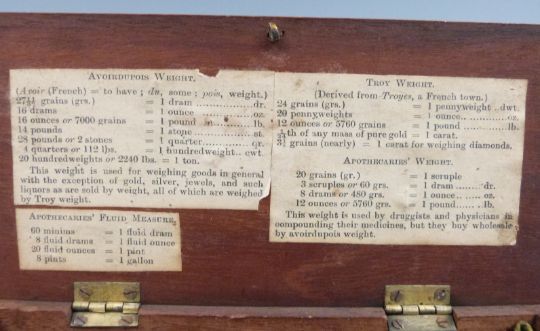 AVOIRDUPOIS WEIGHT.
(Avoir (French) = to have; du, some; pois, weight.)
27 11/32 grains (grs.) = 1 dram ............ dr.
16 drams = 1 ounce ........... oz.
16 ounces or 7000 grains = 1 pound .. in ..... lb.
14 pounds = 1 stone ........... st.
28 pounds or 2 stones = 1 quarter ......... qr.
4 quarters or 112 lbs. = 1 hundredweight... cwt.
20 hundredweights or 2240 lbs. = 1 ton.
This weight is used for weighing goods in general
with the exception of gold, silver, jewels, and such
liquors as are sold by weight, all of which are weighed
by Troy weight.
APOTHECARIES' FLUID MEASURE.
60 minims = 1 fluid dram
8 fluid drams = 1 fluid ounce
20 fluid ounces = 1 pint
8 pints = 1 gallon
TROY WEIGHT.
(Derived from Troyes, a French town.)
24 grains (grs.) = 1 pennyweight .. dwt.
20 pennyweights = 1 ounce ........ oz.
12 ounces or 5760 grains = 1 pound ........ lb.
th of any mass of pure gold = 1 carat.
grains (nearly) = 1 carat for weighing diamonds.
APOTHECARIES' WEIGHT.
20 grains (gr.) = 1 scruple
3 scruples or 60 grs. = 1 dram ....... dr.
8 drams or 480 grs. = 1 ounce ....... oz.
12 ounces or 5760 grs. = 1 pound ....... lb.
This weight is used by druggists and physicians in
compounding their medicines, but they buy wholesale
by avoirdupois weight.